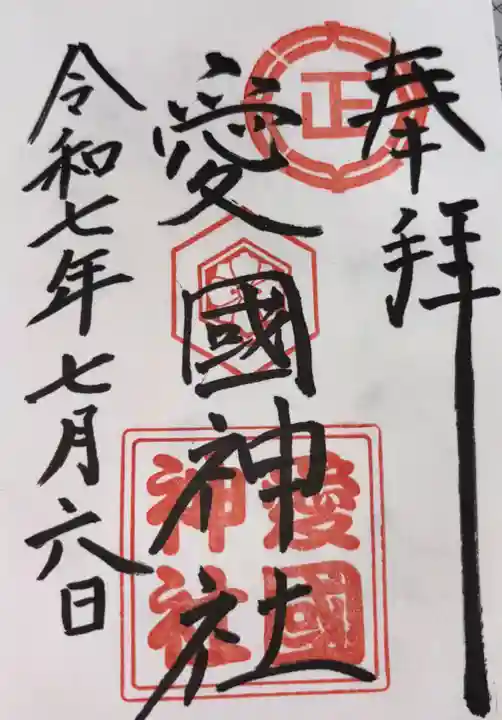 奉拝
正
愛國神社
愛國
神社
令和七年七月六日